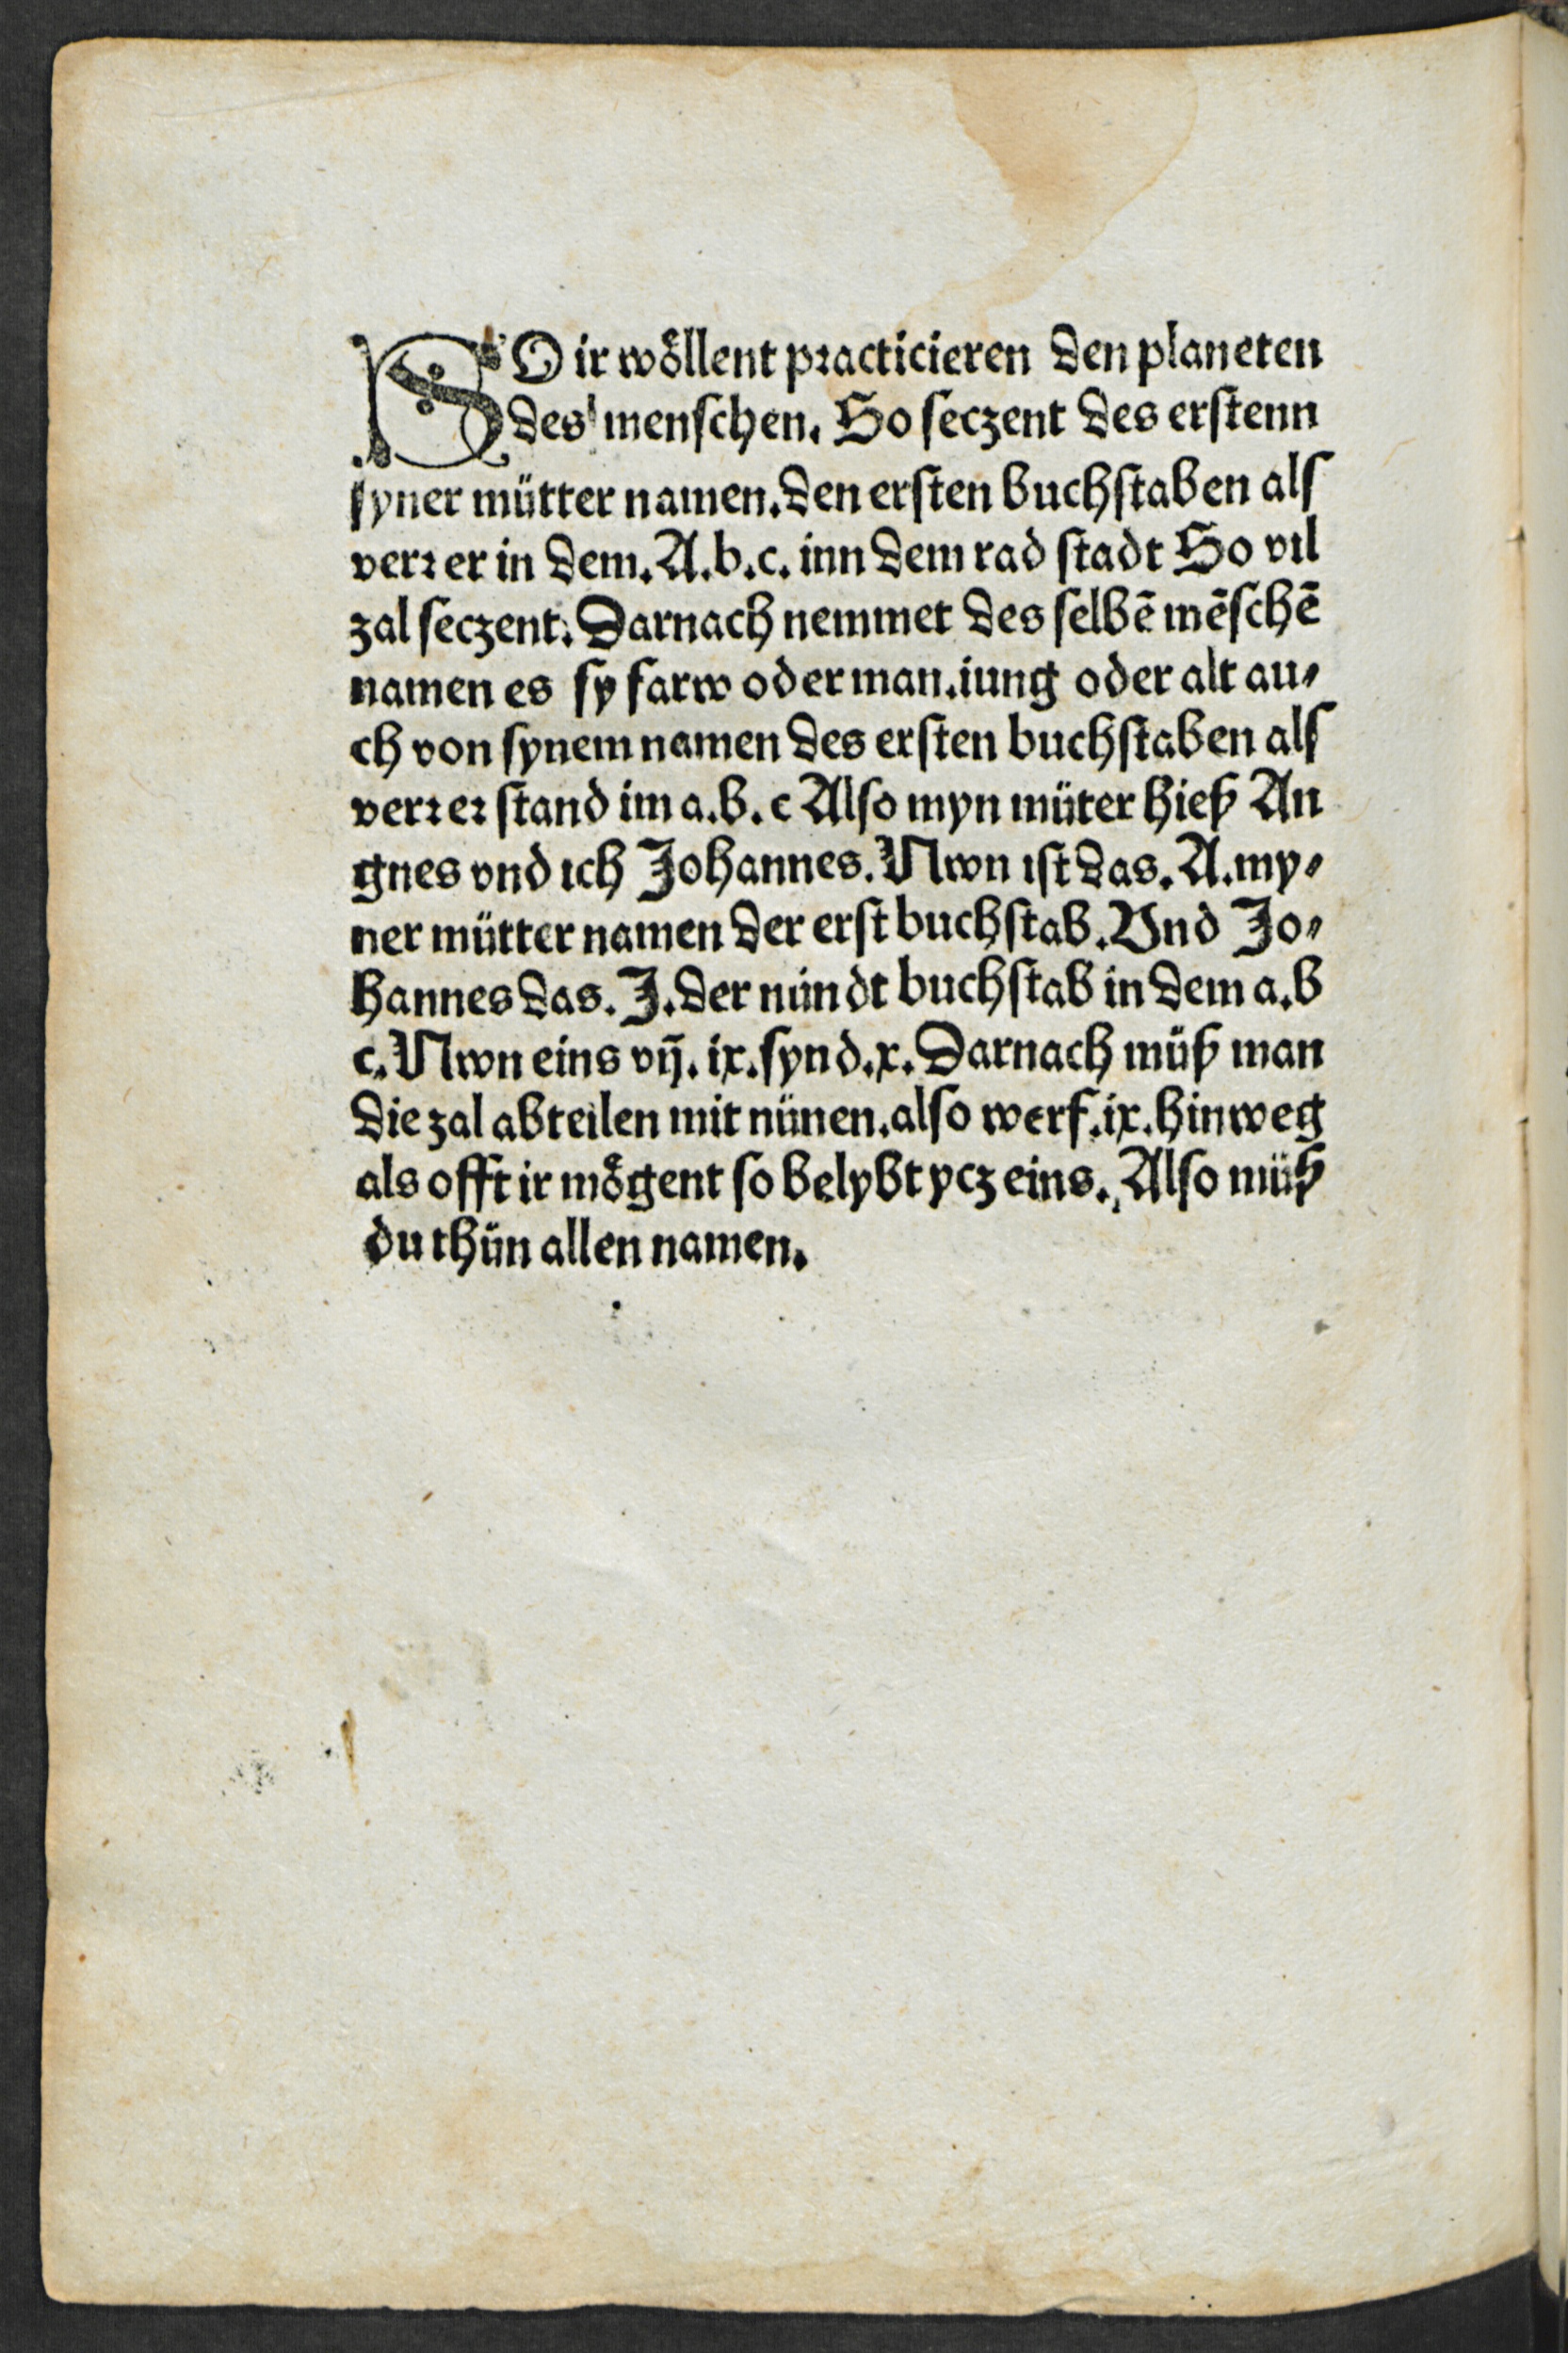 SO ir wöllent practicieren den planeten
des menschen. So seczent des erstenn
syner mütter namen. den ersten buchstaben als
verr er in dem. A. b. c. inn dem rad stadt So vil
zal seczent. Darnach nemmet des selbē mēschē
namen es sy farw oder man. iung oder alt au⸗
ch von synem namen des ersten buchstaben als
verr er stand im a. b. c Also myn müter hieß An
gnes vnd ich Johannes. Nwn ist das. A. my⸗
ner mütter namen der erst buchstab. Vnd Jo⸗
hannes das. J. der nündt buchstab in dem a. b
c. Nwn eins vn̄. ix. synd. x. Darnach müß man
die zal abteilen mit nünen. also werf. ix. hinweg
als offt ir mögent so belybt ycz eins. Also müß
du thün allen namen.